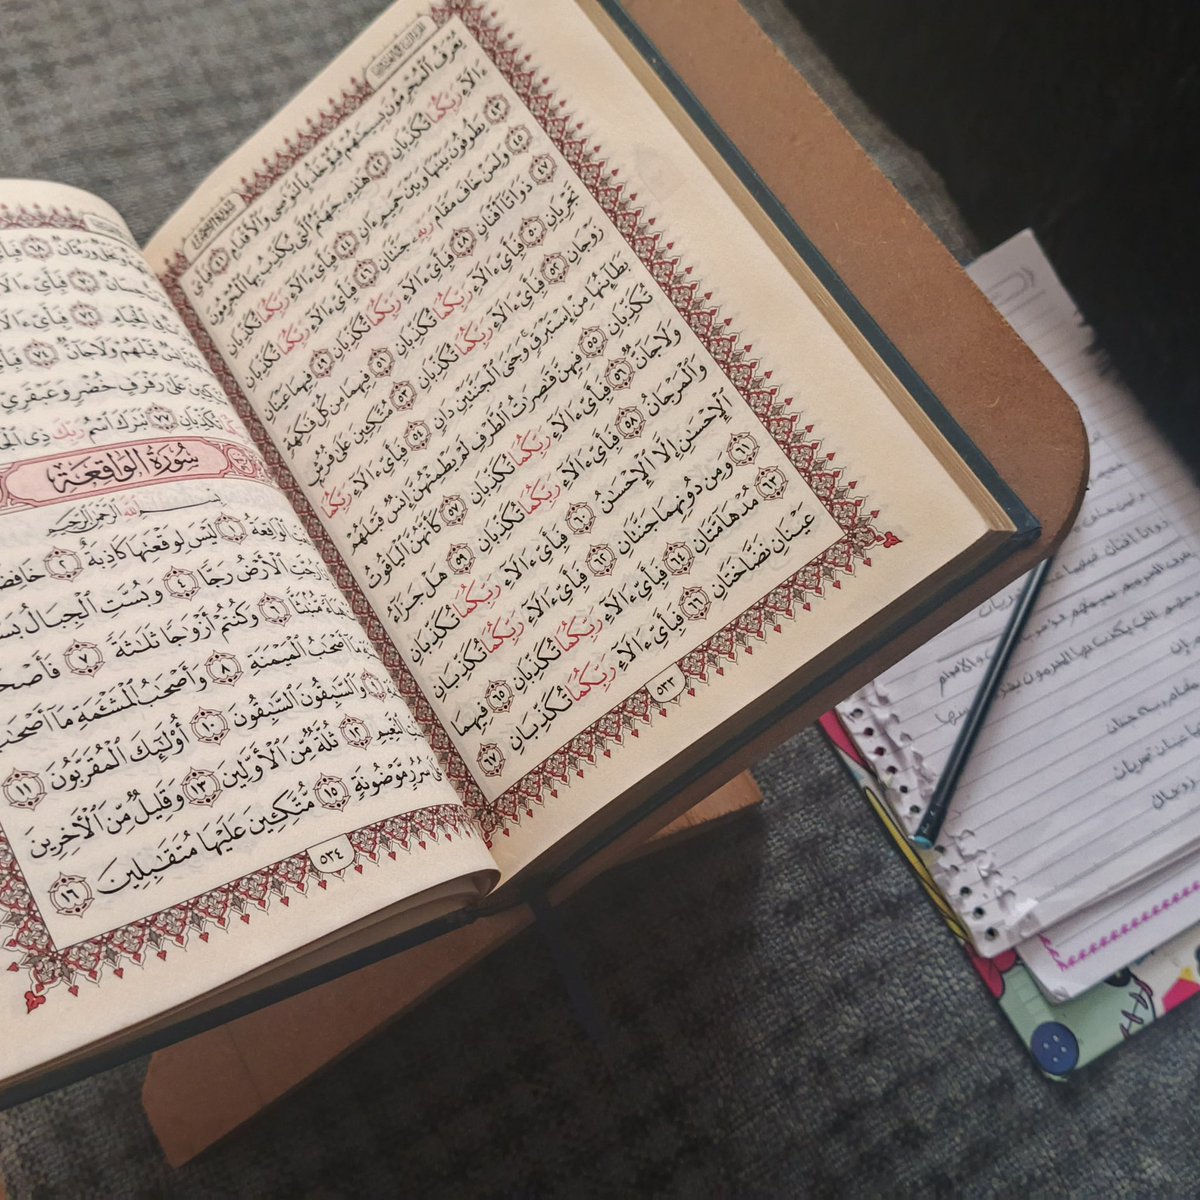 سُورَةُ الرَّحْمَٰن
يُعْرَفُ ٱلْمُجْرِمُونَ بِسِيمَٰهُمْ فَيُؤْخَذُ بِٱلنَّوَٰصِى وَٱلْأَقْدَامِ ٤١ فَبِأَىِّ
ءَالَآءِ رَبِّكُمَا تُكَذِّبَانِ ٤٢ هَٰذِهِۦ جَهَنَّمُ ٱلَّتِى يُكَذِّبُ بِهَا ٱلْمُجْرِمُونَ
٤٣ يَطُوفُونَ بَيْنَهَا وَبَيْنَ حَمِيمٍ ءَانٍ ٤٤ فَبِأَىِّ ءَالَآءِ رَبِّكُمَا تُكَذِّبَانِ
٤٥ وَلِمَنْ خَافَ مَقَامَ رَبِّهِۦ جَنَّتَانِ ٤٦ فَبِأَىِّ ءَالَآءِ رَبِّكُمَا تُكَذِّبَانِ
٤٧ ذَوَاتَآ أَفْنَانٍ ٤٨ فَبِأَىِّ ءَالَآءِ رَبِّكُمَا تُكَذِّبَانِ ٤٩ فِيهِمَا عَيْنَانِ
تَجْرِيَانِ ٥٠ فَبِأَىِّ ءَالَآءِ رَبِّكُمَا تُكَذِّبَانِ ٥١ فِيهِمَا مِن كُلِّ فَٰكِهَةٍ
زَوْجَانِ ٥٢ فَبِأَىِّ ءَالَآءِ رَبِّكُمَا تُكَذِّبَانِ ٥٣ مُتَّكِـِٔينَ عَلَىٰ فُرُشٍۭ
بَطَآئِنُهَا مِنْ إِسْتَبْرَقٍ وَجَنَى ٱلْجَنَّتَيْنِ دَانٍ ٥٤ فَبِأَىِّ ءَالَآءِ رَبِّكُمَا
تُكَذِّبَانِ ٥٥ فِيهِنَّ قَٰصِرَٰتُ ٱلطَّرْفِ لَمْ يَطْمِثْهُنَّ إِنسٌ قَبْلَهُمْ
وَلَا جَآنٌّ ٥٦ فَبِأَىِّ ءَالَآءِ رَبِّكُمَا تُكَذِّبَانِ ٥٧ كَأَنَّهُنَّ ٱلْيَاقُوتُ
وَٱلْمَرْجَانُ ٥٨ فَبِأَىِّ ءَالَآءِ رَبِّكُمَا تُكَذِّبَانِ ٥٩ هَلْ جَزَآءُ
ٱلْإِحْسَٰنِ إِلَّا ٱلْإِحْسَٰنُ ٦٠ فَبِأَىِّ ءَالَآءِ رَبِّكُمَا تُكَذِّبَانِ
٦١ وَمِن دُونِهِمَا جَنَّتَانِ ٦٢ فَبِأَىِّ ءَالَآءِ رَبِّكُمَا تُكَذِّبَانِ
٦٣ مُدْهَآمَّتَانِ ٦٤ فَبِأَىِّ ءَالَآءِ رَبِّكُمَا تُكَذِّبَانِ ٦٥ فِيهِمَا
عَيْنَانِ نَضَّاخَتَانِ ٦٦ فَبِأَىِّ ءَالَآءِ رَبِّكُمَا تُكَذِّبَانِ ٦٧
٥٣٣
وَنَخْلٌ وَرُمَّانٌ ٦٨ فَبِأَىِّ
حِسَانٌ ٧٠ فَبِأَىِّ ءَالَآ
فِى ٱلْخِيَامِ ٧٢ فَبِأَىِّ ءَالَآ
إِنسٌ قَبْلَهُمْ وَلَا جَآنٌّ ٧٤ فَبِأَىِّ
عَلَىٰ رَفْرَفٍ خُضْرٍ وَعَبْقَرِىٍّ
تُكَذِّبَانِ ٧٧ تَبَٰرَكَ ٱسْمُ رَبِّكَ ذِى ٱلْجَ
سُورَةُ الوَاقِعَة
بِسْمِ ٱللَّهِ ٱلرَّحْمَٰنِ ٱلرَّحِيمِ
ٱلْوَاقِعَةُ ١ لَيْسَ لِوَقْعَتِهَا كَاذِبَةٌ ٢ خَافِضَ
رُجَّتِ ٱلْأَرْضُ رَجًّا ٤ وَبُسَّتِ ٱلْجِبَالُ بَس
مُّنۢبَثًّا ٦ وَكُنتُمْ أَزْوَٰجًا ثَلَٰثَةً ٧ فَأَصْحَ
مَآ أَصْحَٰبُ ٱلْمَيْمَنَةِ ٨ وَأَصْحَٰبُ ٱلْمَشْـَٔمَةِ مَآ أَصْحَٰبُ
وَٱلسَّٰبِقُونَ ٱلسَّٰبِقُونَ ١٠ أُو۟لَٰٓئِكَ ٱلْمُقَرَّبُونَ ١١
ٱلنَّعِيمِ ١٢ ثُلَّةٌ مِّنَ ٱلْأَوَّلِينَ ١٣ وَقَلِيلٌ مِّنَ ٱلْأٓخِرِينَ
عَلَىٰ سُرُرٍ مَّوْضُونَةٍ ١٥ مُّتَّكِـِٔينَ عَلَيْهَا مُتَقَٰبِلِينَ ١٦
٥٣٤
ذواتا افنان فيهما
يعرف المجرمون بسيمهم
والاقدام
التي يكذب بها المجرمون
مقام ربه جنتان
عينان تجريان
زوجان